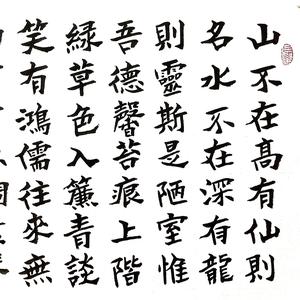 山不在高有仙則
名水不在深有龍
則靈斯是陋室惟
吾德馨苔痕上階
綠草色入簾青談
笑有鴻儒往來無